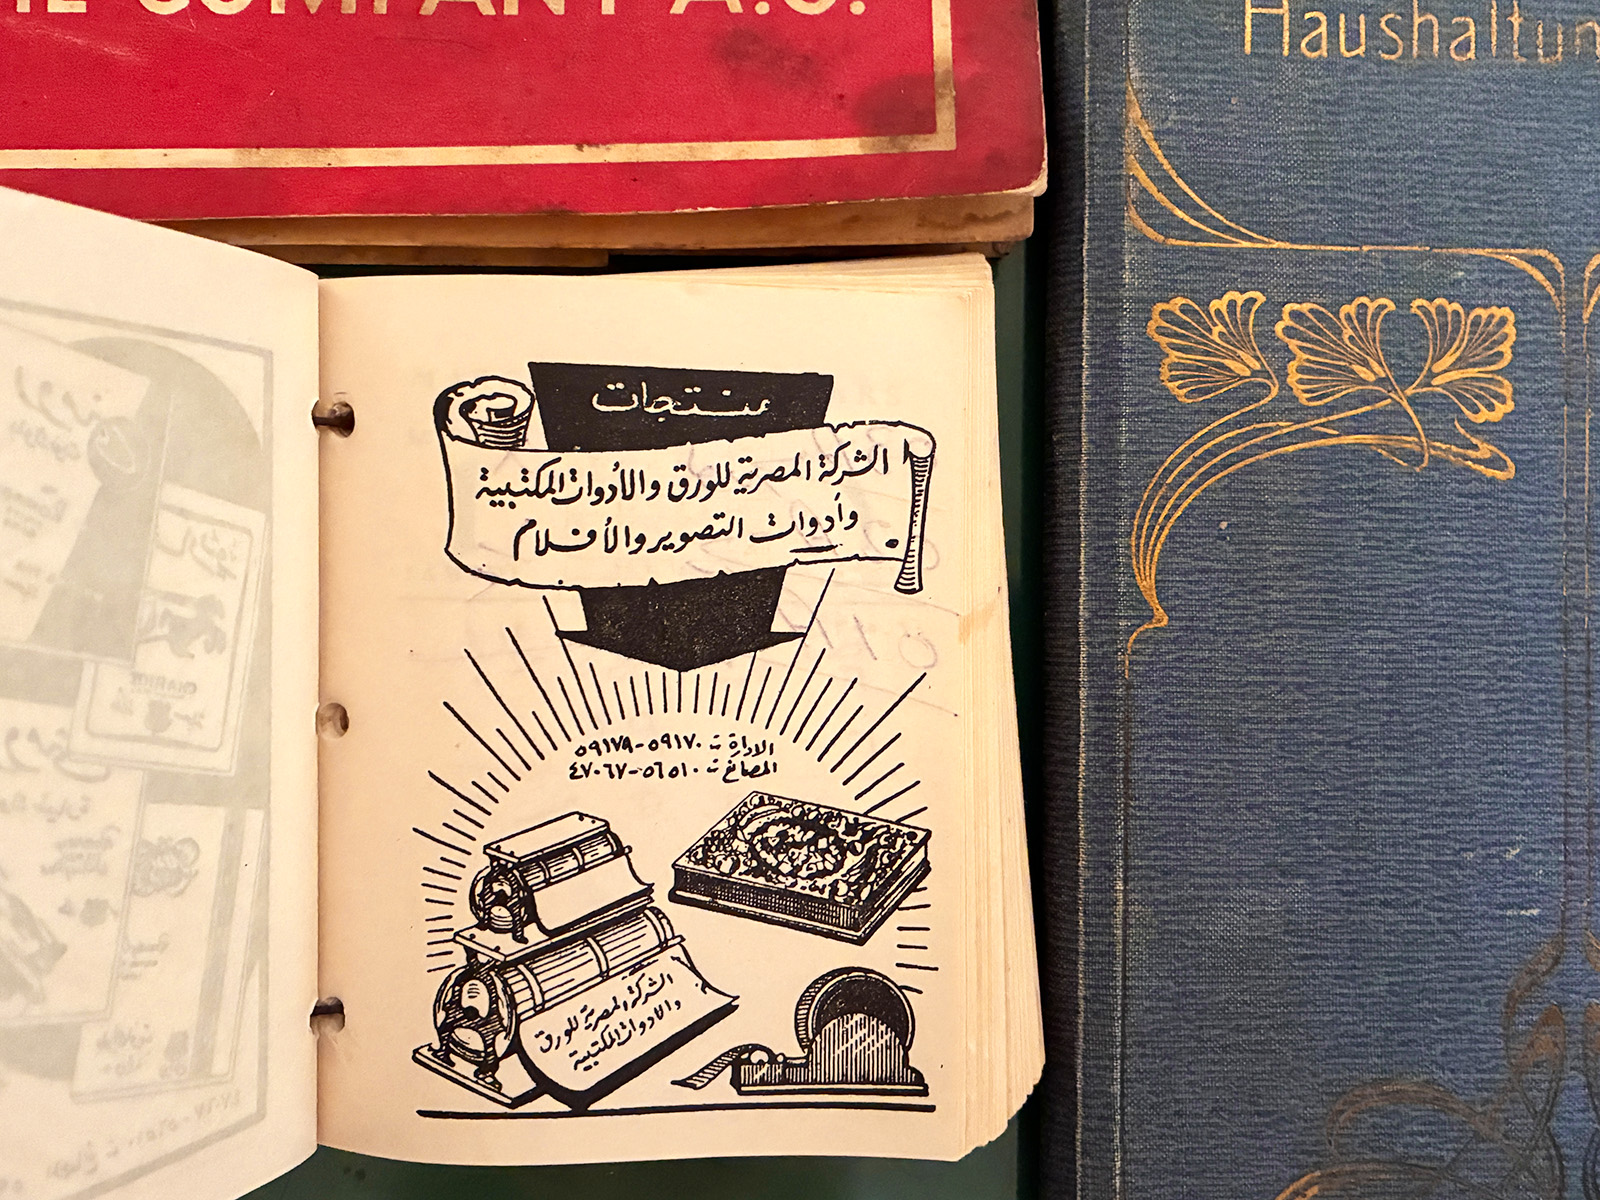 THE COMPANY A.G.
Haushaltun
منتجات
الشركة المصرية للورق والأدوات المكتبية
وأدوات التصوير والأفلام
الادارة ت ٥٩١٧٠-٥٩١٧٩
المصانع ت ٥٦٥١٠-٤٧٠٦٧
الشركة المصرية للورق
والادوات المكتبية